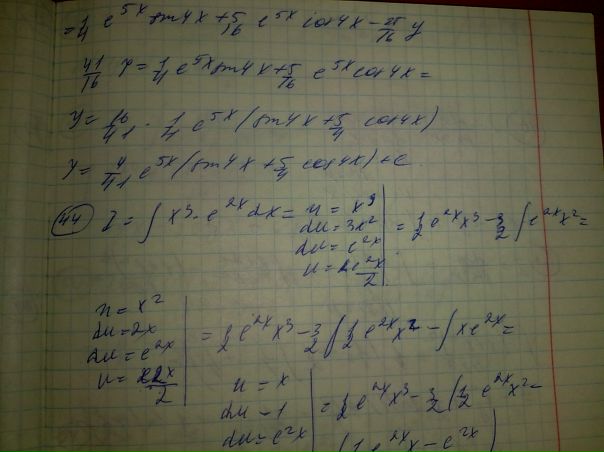 = 1/4 e^5x sin4x + 5/16 e^5x cos4x - 25/16 y
41/16 y = 1/4 e^5x sin4x + 5/16 e^5x cos4x =
y = 16/41 · 1/4 e^5x (sin4x + 5/4 cos4x)
y = 4/41 e^5x (sin4x + 5/4 cos4x) + c
44 I = ∫ x^3 · e^2x dx = u = x^3
du = 3x^2
du = e^2x
= 1/2 e^2x x^3 - 3/2 ∫ e^2x x^2 =
u = x^2
du = 2x
du = e^2x
= 1/2 e^2x x^3 - 3/2 ( 1/2 e^2x x^2 - ∫ x e^2x =
u = x
du - 1
du = e^2x
= 1/2 e^2x x^3 - 3/2 ( 1/2 e^2x x^2 -